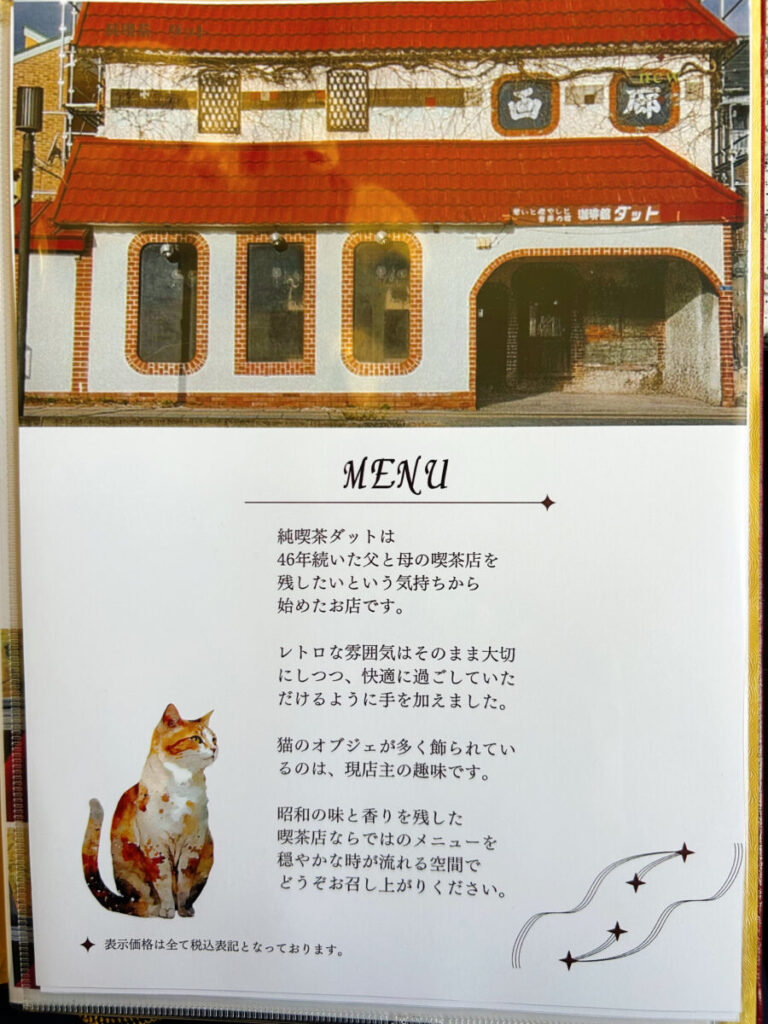 画廊
憩いと安らぎと
音楽の館 珈琲館 ダット
MENU
純喫茶ダットは
46年続いた父と母の喫茶店を
残したいという気持ちから
始めたお店です。
レトロな雰囲気はそのまま大切
にしつつ、快適に過ごしていた
だけるように手を加えました。
猫のオブジェが多く飾られてい
るのは、現店主の趣味です。
昭和の味と香りを残した
喫茶店ならではのメニューを
穏やかな時が流れる空間で
どうぞお召し上がりください。
表示価格は全て税込表記となっております。